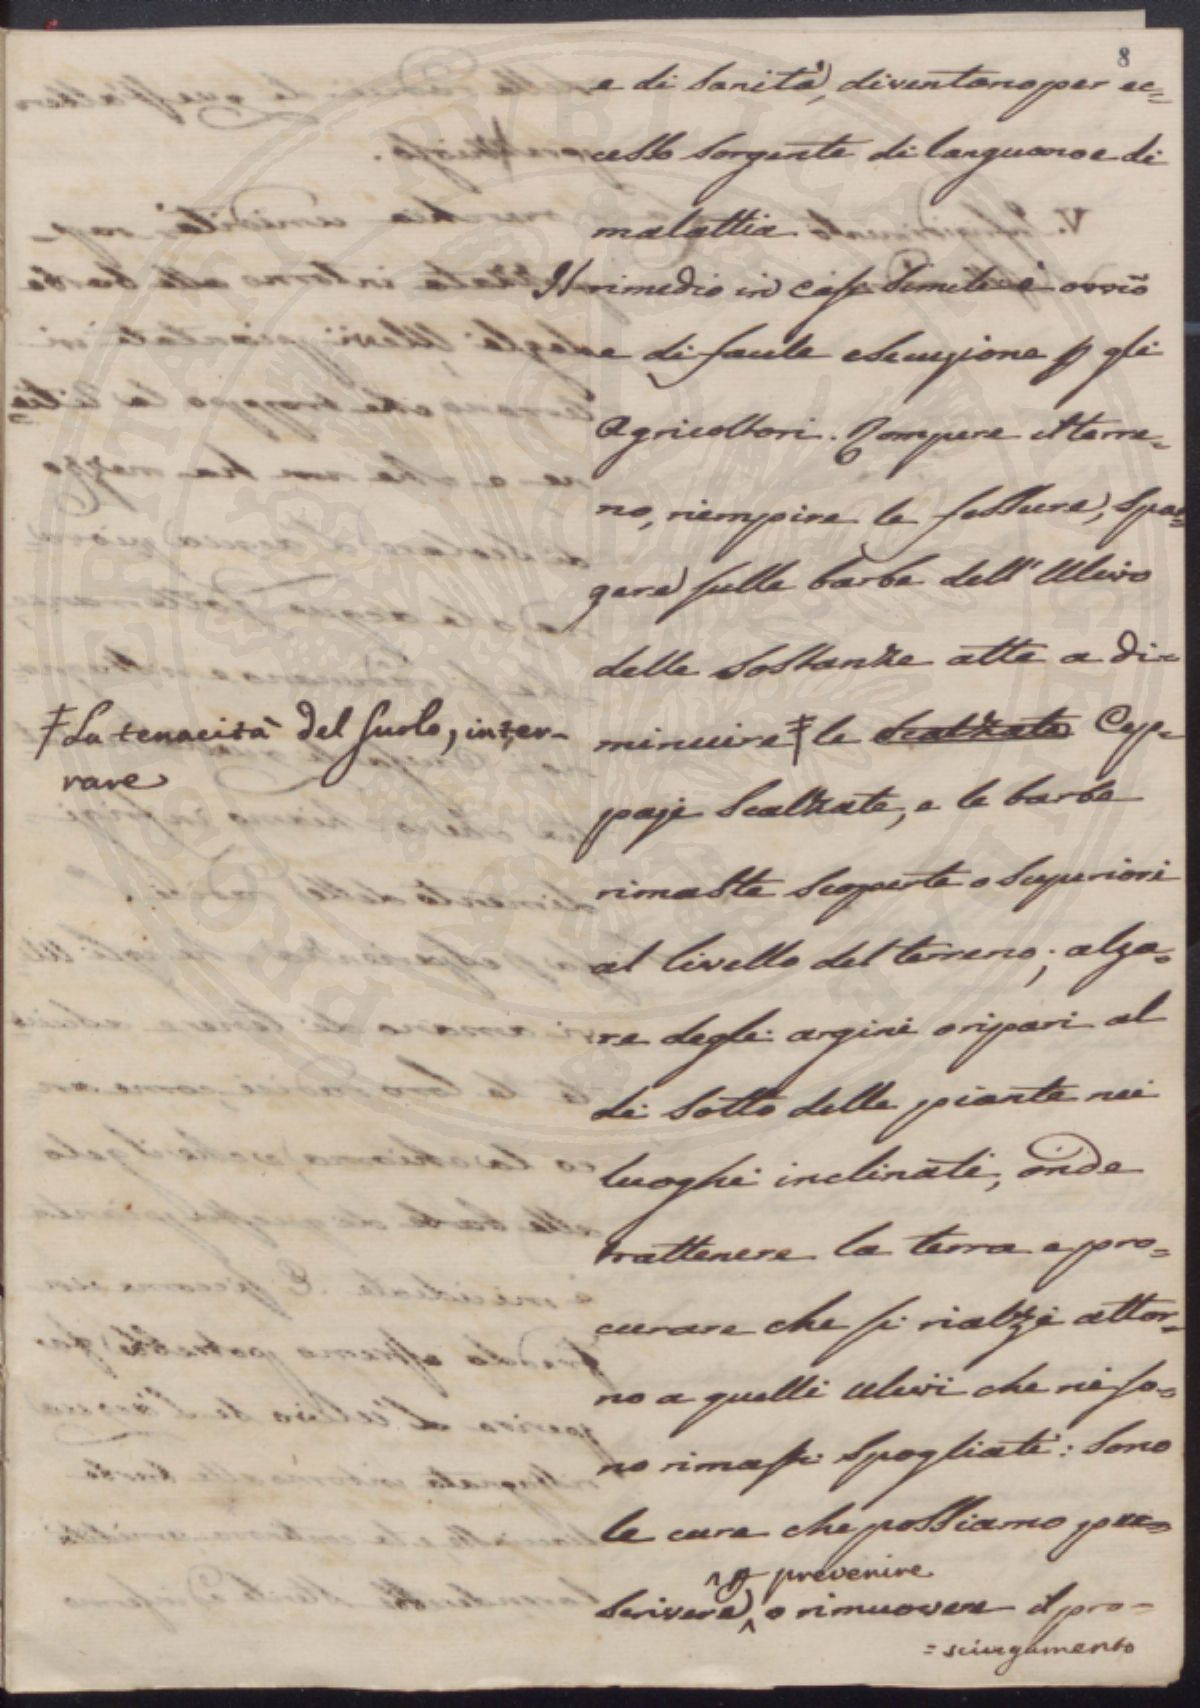 8
e di sanità, diventano per ec=
cesso sorgente di languore e di
malattia
Il rimedio in casi simili è ovvio
e di facile esecuzione p gli
Agricoltori. Rompere il terre=
no, riempire le fessure, spar=
gere sulle barbe dell' Ulivo
delle sostanze atte a di=
minuire ‡ le scalzate Cep=
paje scalzate, e le barbe
rimaste scoperte o superiori
al livello del terreno; alza=
re degli argini o ripari al
di sotto delle piante nei
luoghi inclinati, onde
trattenere la terra e pro=
curare che si rialzi attor=
no a quelli ulivi che ne so=
no rimasti spogliati: Sono
le cure che possiamo pre=
p prevenire
scrivere, o rimuovere il pro=
=sciugamento
‡ La tenacità del suolo, inter=
rare